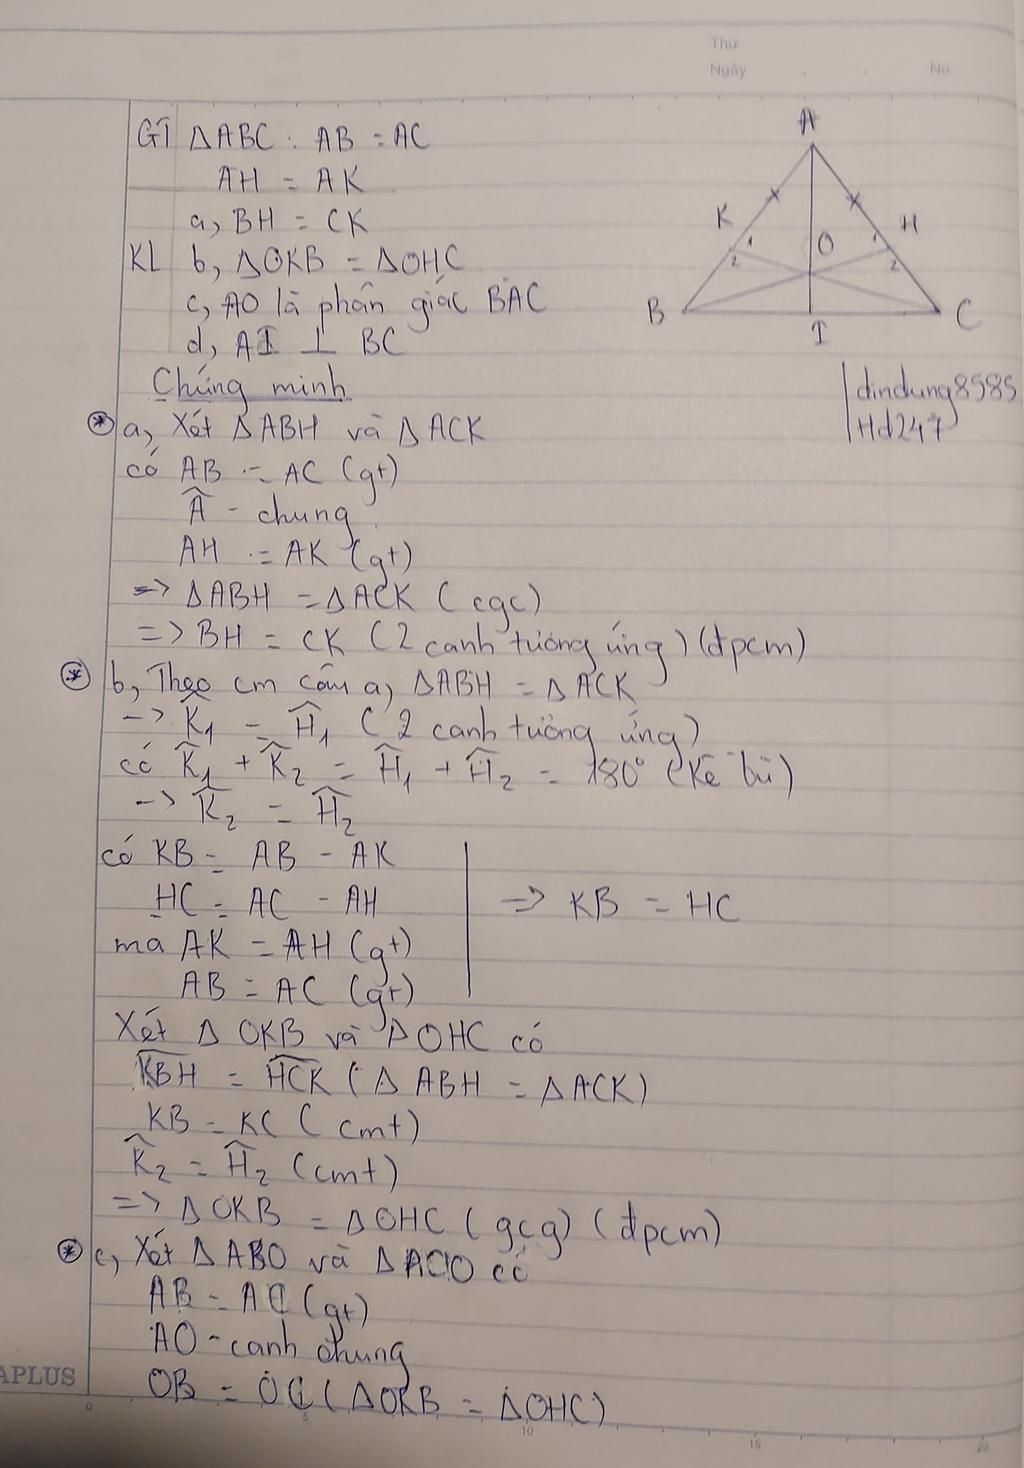 Thứ
Ngày No
GT ΔABC : AB = AC
AH = AK
a, BH = CK
KL b, ΔOKB = ΔOHC
c, AO là phân giác BAC
d, AI ⊥ BC
A
K 1 2
O
1 2 H
B I C
Chứng minh
dindung8585
Hd247
* a, Xét ΔABH và ΔACK
có AB = AC (gt)
Â - chung
AH = AK (gt)
=> ΔABH = ΔACK (cgc)
=> BH = CK (2 canh tương ứng) (đpcm)
* b, Theo cm câu a, ΔABH = ΔACK
-> K̂1 = Ĥ1 (2 canh tương ứng)
có K̂1 + K̂2 = Ĥ1 + Ĥ2 = 180° (kề bù)
-> K̂2 = Ĥ2
có KB = AB - AK
HC = AC - AH => KB = HC
ma AK = AH (gt)
AB = AC (gt)
Xét ΔOKB và ΔOHC có
KBH = HCK (ΔABH = ΔACK)
KB = KC (cmt)
K̂2 = Ĥ2 (cmt)
=> ΔOKB = ΔOHC (gcg) (đpcm)
* c, Xét ΔABO và ΔACO có
AB = AC (gt)
AO - canh chung
OB = OC (ΔOKB = ΔOHC)
APLUS
0 5 10 15 20